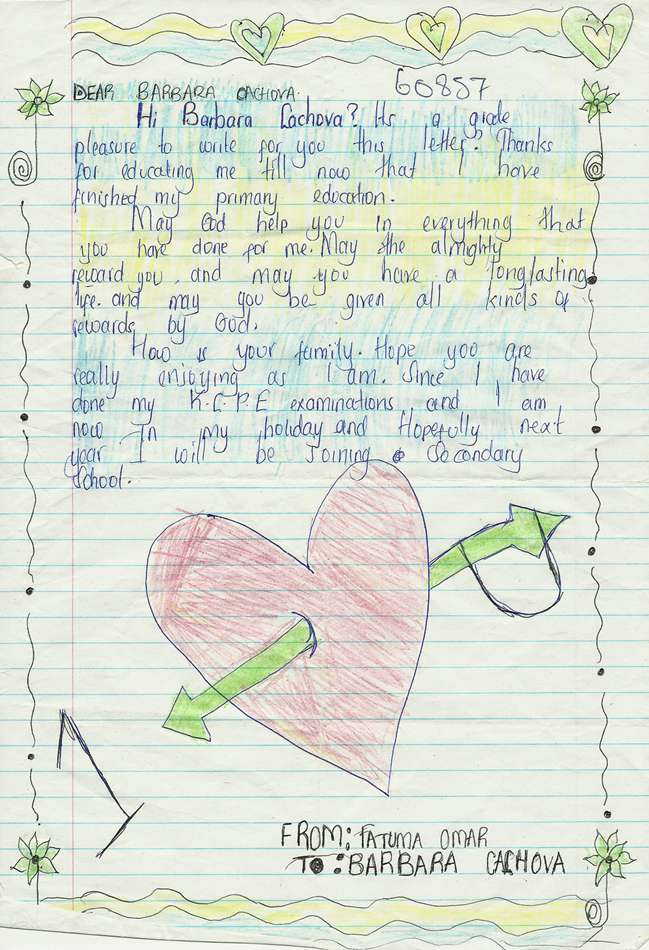 DEAR BARBARA CACHOVA. 60857
Hi Barbara Cachova? Its a grade
pleasure to write for you this letter? Thanks
for educating me till now that I have
finished my primary education.
May God help you in everything that
you have done for me. May the almighty
reward you, and may you have a longlasting
life. and may you be given all kinds of
rewards by God.
How is your family. Hope you are
really enjoying as I am. Since I have
done my K.C.P.E examinations and I am
now In my holiday and Hopefully next
year I will be Joining a Secondary
School.
FROM: FATUMA OMAR
TO: BARBARA CACHOVA